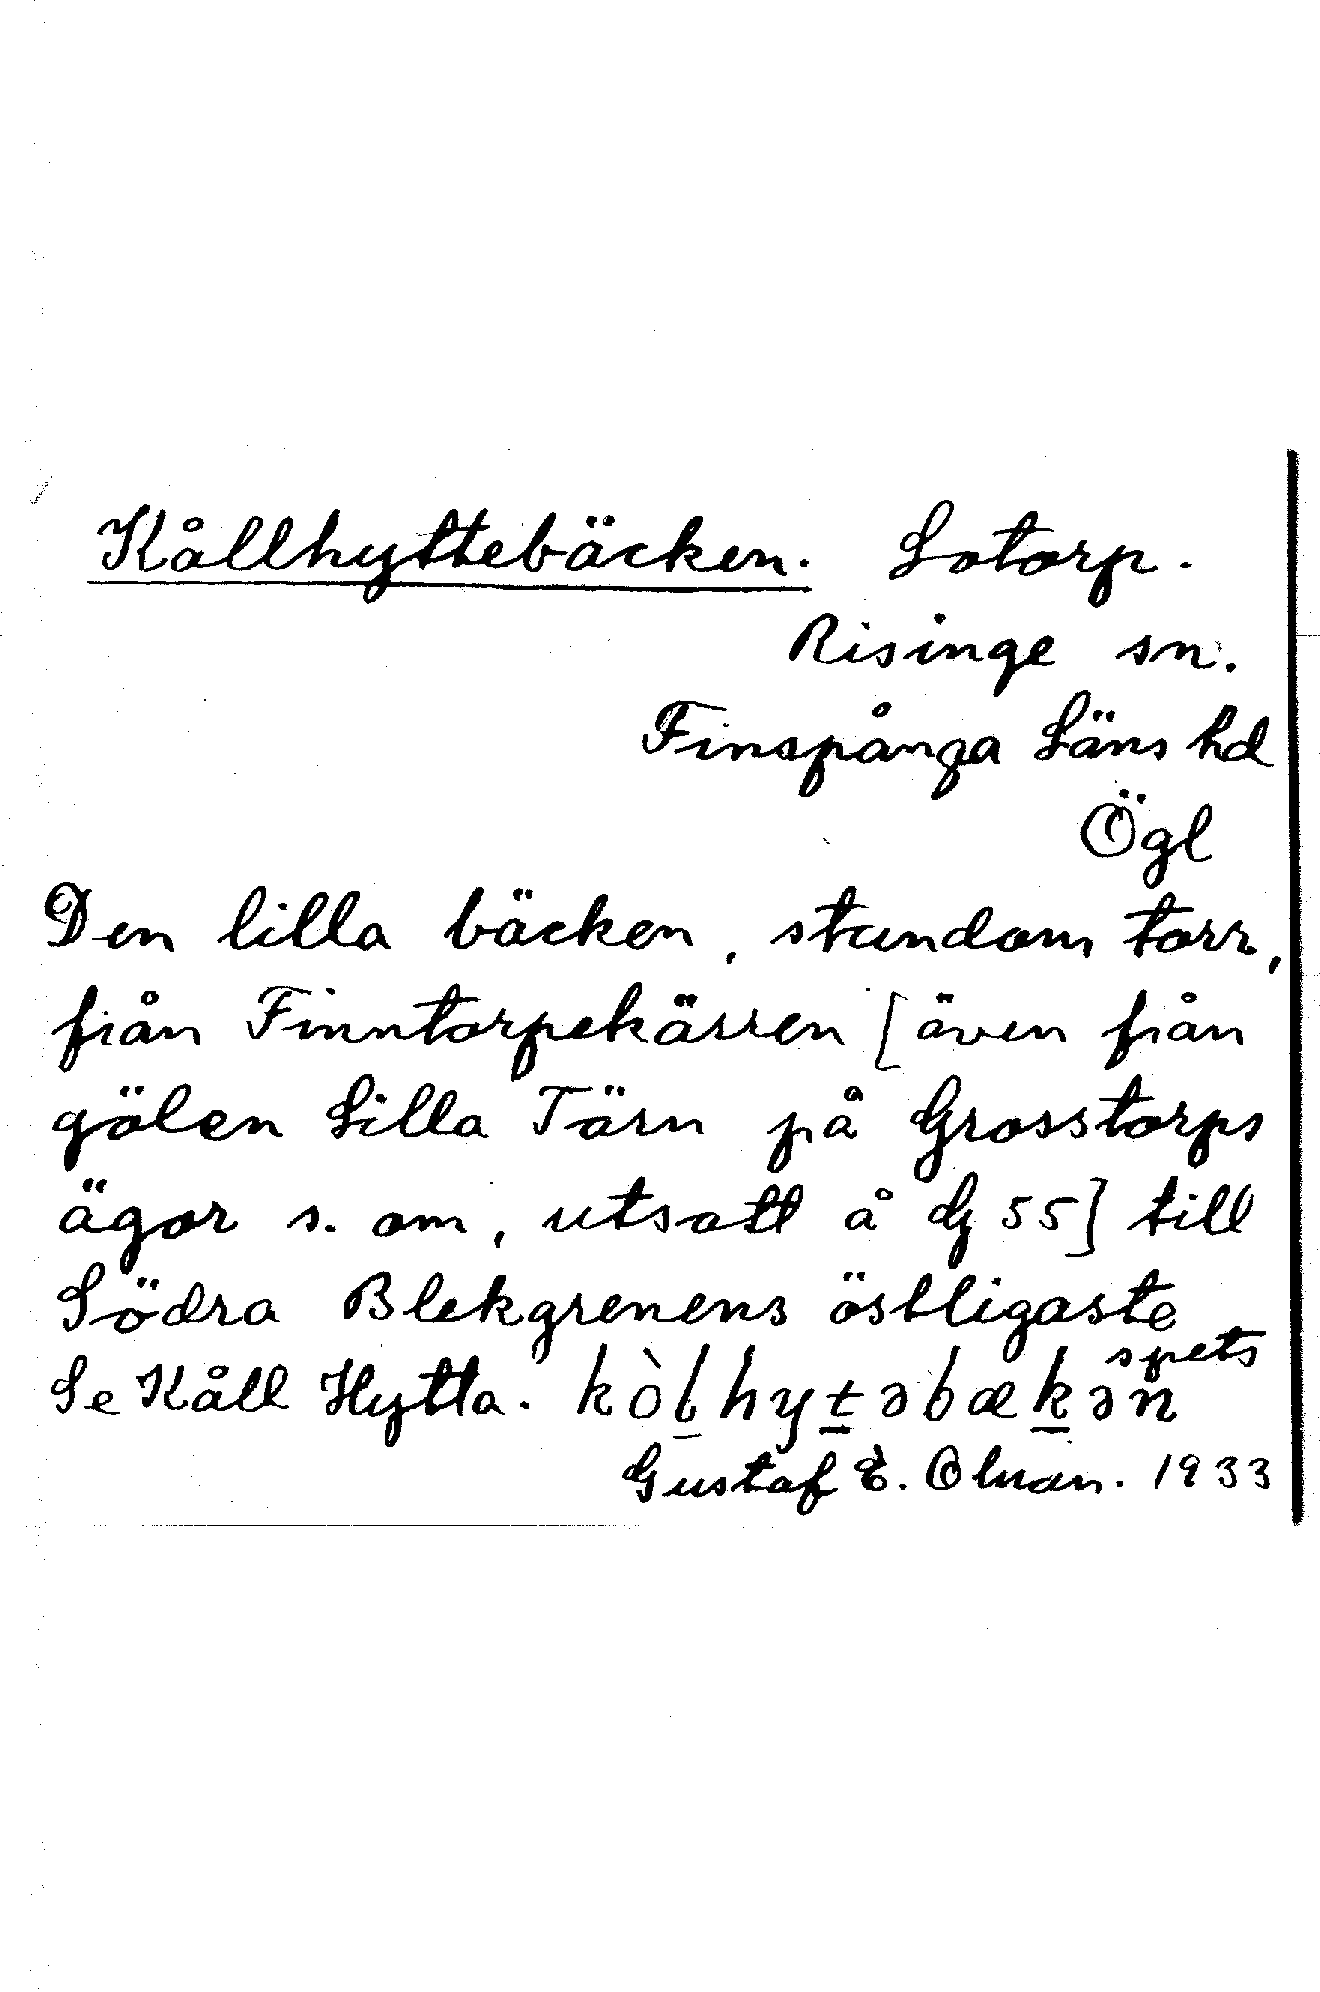 Kållhyttebäcken. Lotorp.
Risinge sn.
Finspånga Läns hd
Ögl
Den lilla bäcken, stundom torr,
från Finntorpekärren [även från
gölen Lilla Tärn på Grosstorps
ägor s. om, utsatt å G 55] till
Södra Blekgrenens östligaste
spets
Se Kåll Hytta. kòlhytəbækən
Gustaf E. Olman. 1933